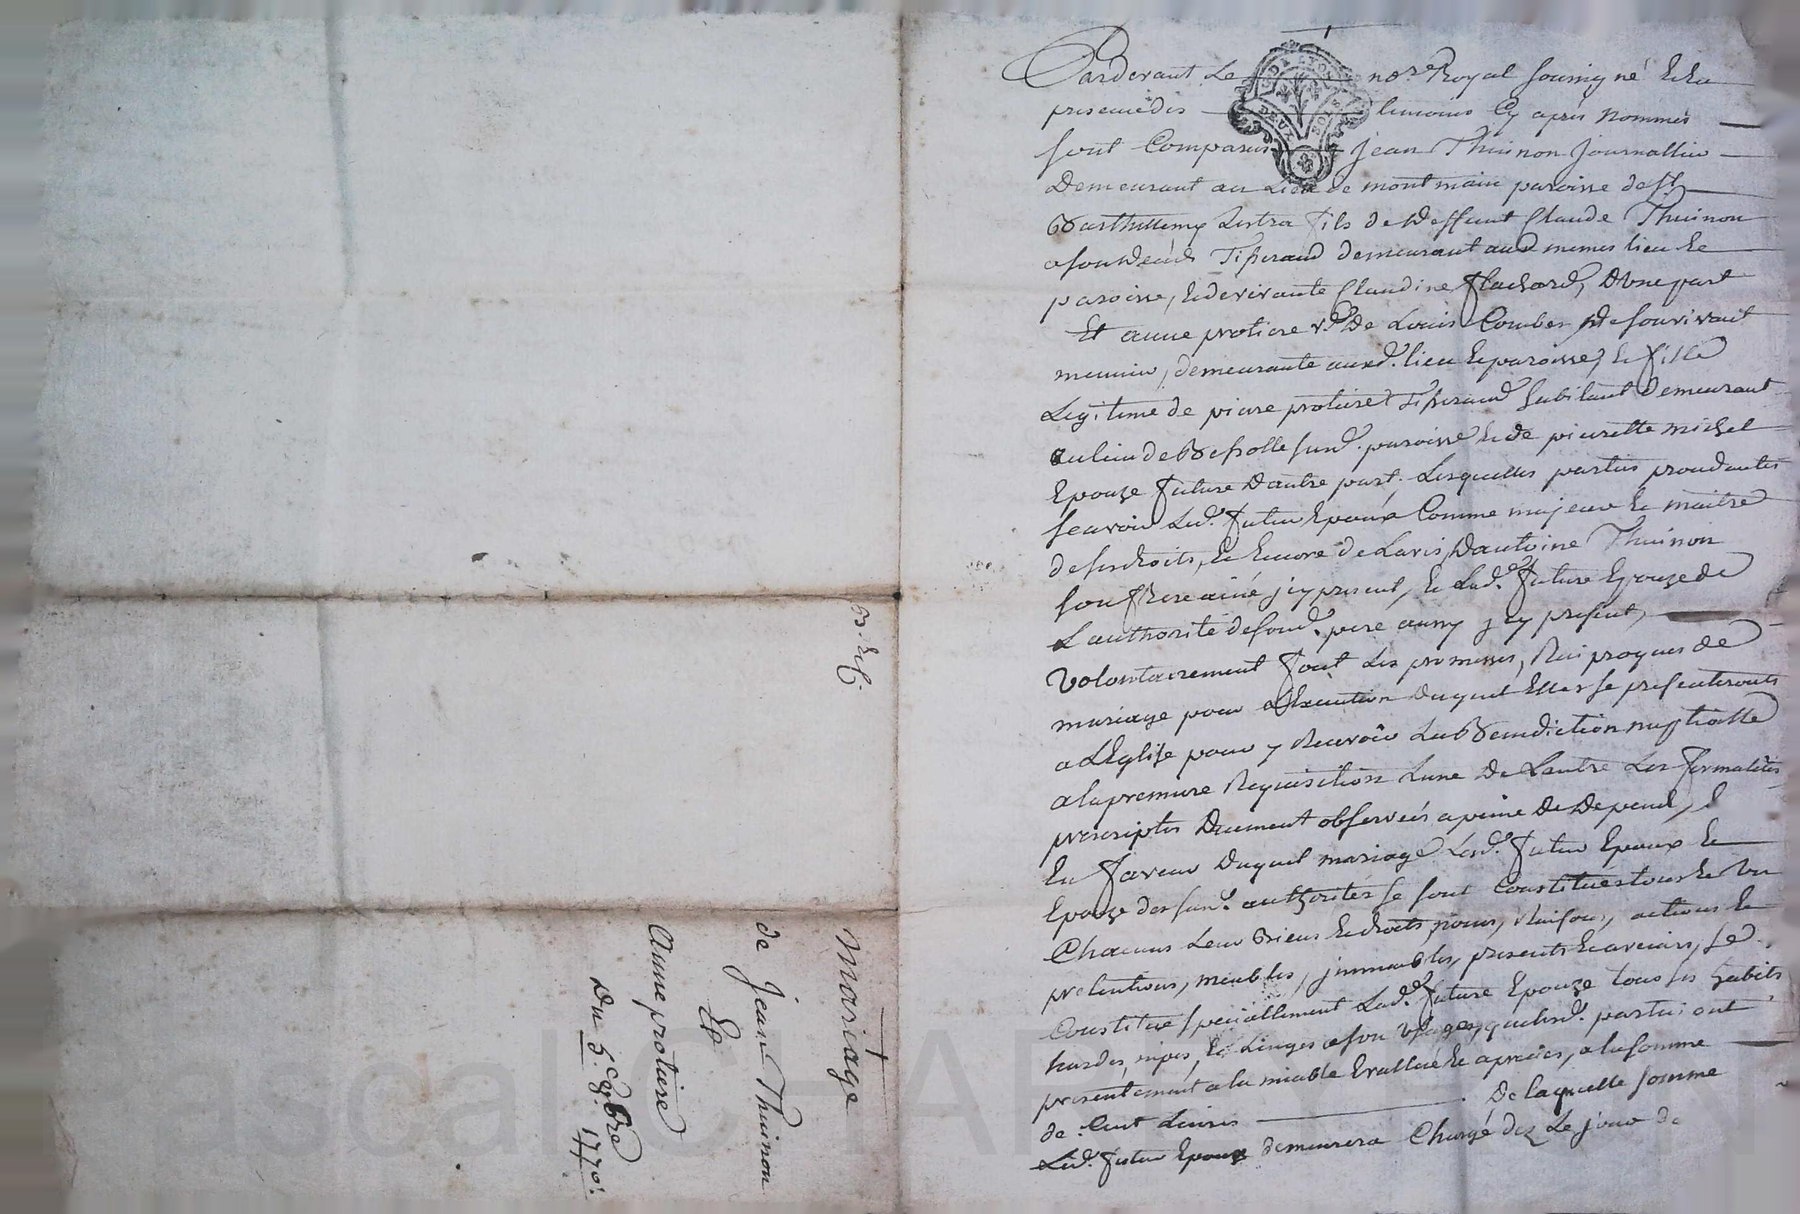 Pardevant Le no.re Royal soussigné et en
presence des temoins Cy aprés nommés
sont Comparus jean Thuinon journallier
Demeurant au Lieu de montmain paroisse de St
Barthellemy Lestra fils de deffunt Claude Thuinon
a son deces Tisserand demeurant aud memes lieu et
paroisse, et de vivante Claudine flachard, D'Une part
Et anne protiere v.e De Louis Combes de son vivant
meunier, demeurante auxd. lieu et paroisse, et fille
Legitime de pierre protiere Tisserand habitant demeurant
au lieu de susd. paroisse et de pierrette michel
Epouze future D'autre part. Lesquelles parties procedantes
scavoir Led. futur Epoux Comme majeur et maitre
de ses droits, et Encore de L'avis D'antoine Thuinon
son frere ainé j cy present, et Lad. future Epouze de
L'authorité de sond. pere aussy j cy present,
Volontairement font Les promesses, Reciproques de
mariage pour a L'Execution duquel Elles se presenteronts
a L'Eglise pour y Recevoir La Benediction nuptialle
a la premiere Requisition L'une de L'autre Les formalités
prescriptes Duement observées a peine de Depend,
En faveur Duquel mariage Lesd. futur Epoux et
Epouze des susd. authorités se sont Constitués tous et Un
Chacuns Leur Biens et droits, noms, Raisons, actions et
pretentions, meubles, jmmeubles, presents et avenirs, se
Constitue speciallement Lad. future Epouze tous ses habits
hardes, nipes, et Linges a son Usage, que lesd. parties ont
presentement a la miable Evallué et apreciés, a la somme
de Cent Livres De laquelle somme
Led. futur Epoux demeurera Chargé dez Le jour de
DE LYON
DEUX SOLS
Mariage
de Jean Thuinon
Et
Anne protiere
Du 5.e 9bre 1770.